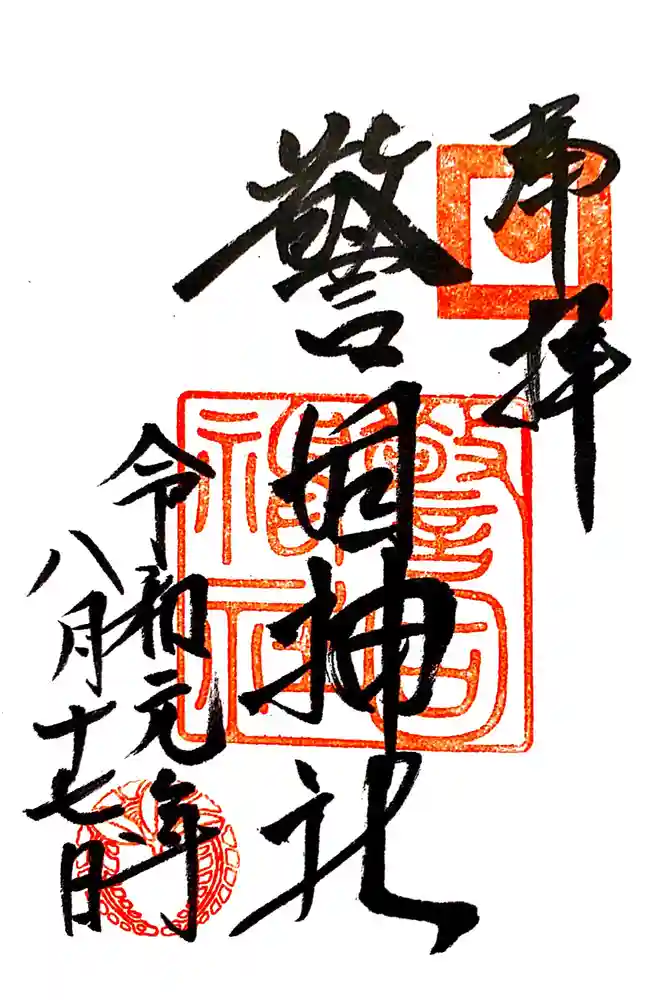 奉拝
警固神社
令和元年
八月十七日
警固
神社